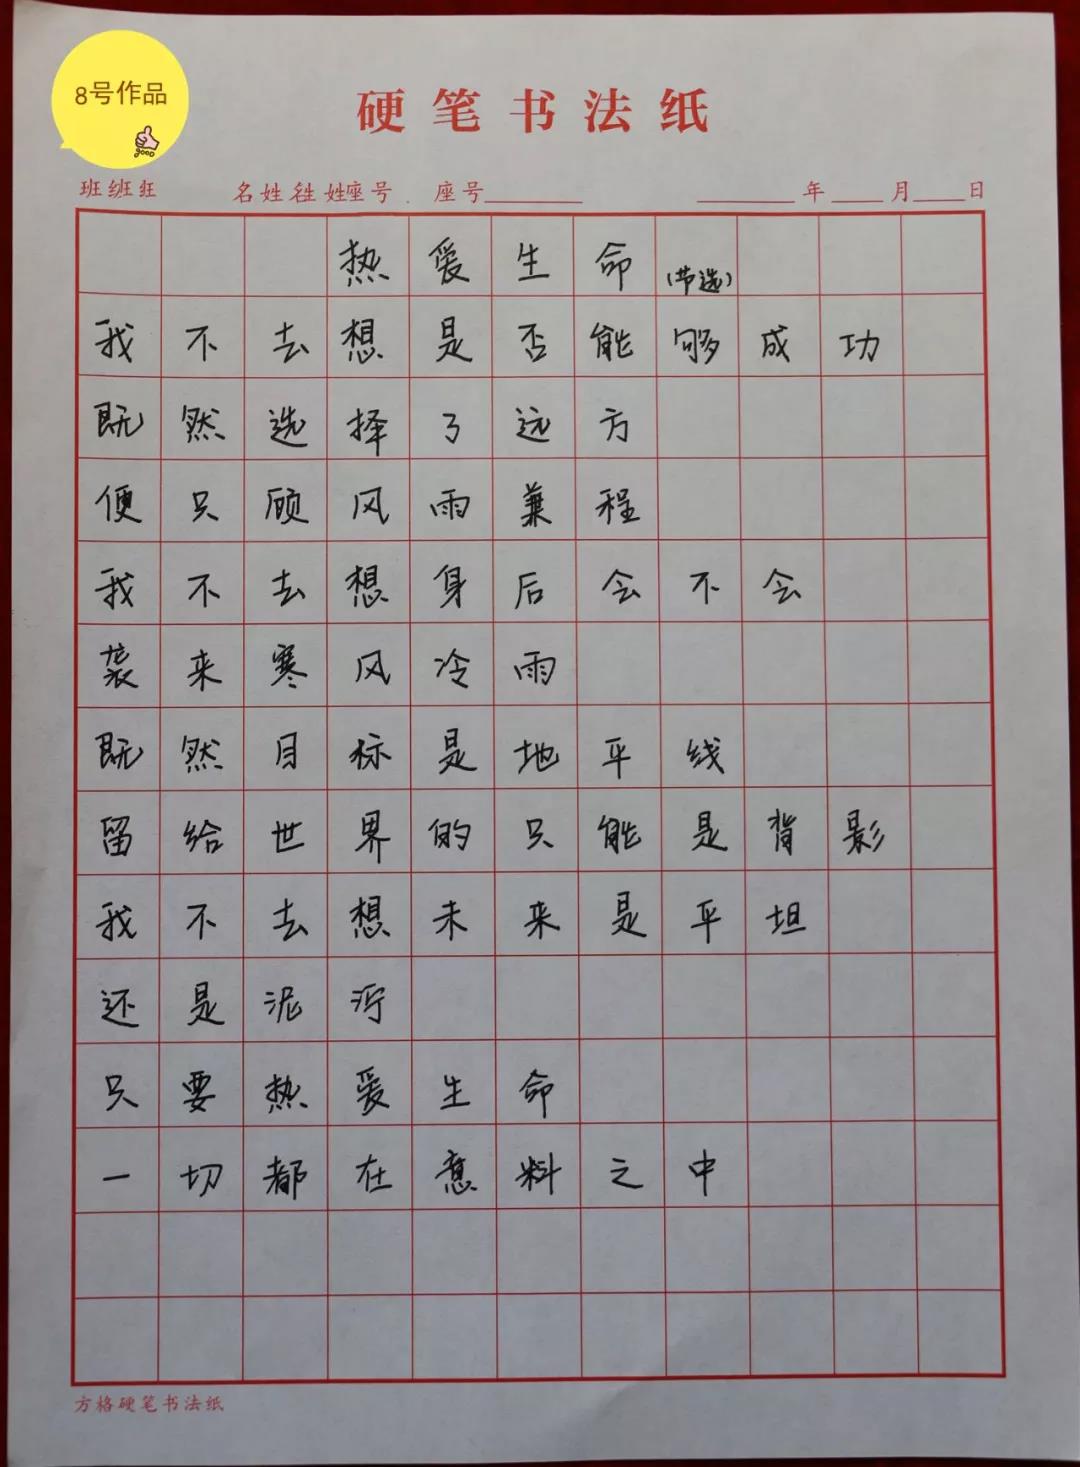 8号作品
gooo
硬笔书法纸
班 名姓 姓座号 座号 年 月 日
热爱生命(节选)
我不去想是否能够成功
既然选择了远方
便只顾风雨兼程
我不去想身后会不会
袭来寒风冷雨
既然目标是地平线
留给世界的只能是背影
我不去想未来是平坦
还是泥泞
只要热爱生命
一切都在意料之中
方格硬笔书法纸